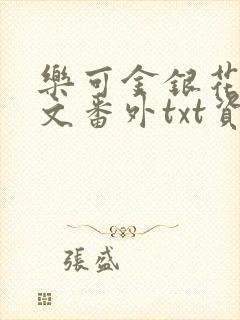 樂可金銀花
文番外txt資
張盛